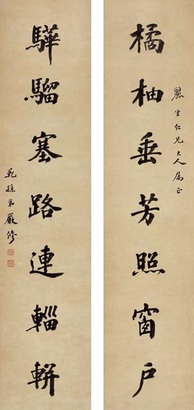 橘柚垂芳照窗戶
生仁兄大人屬正
驊騮塞路連輜軿
乾孫弟嚴修